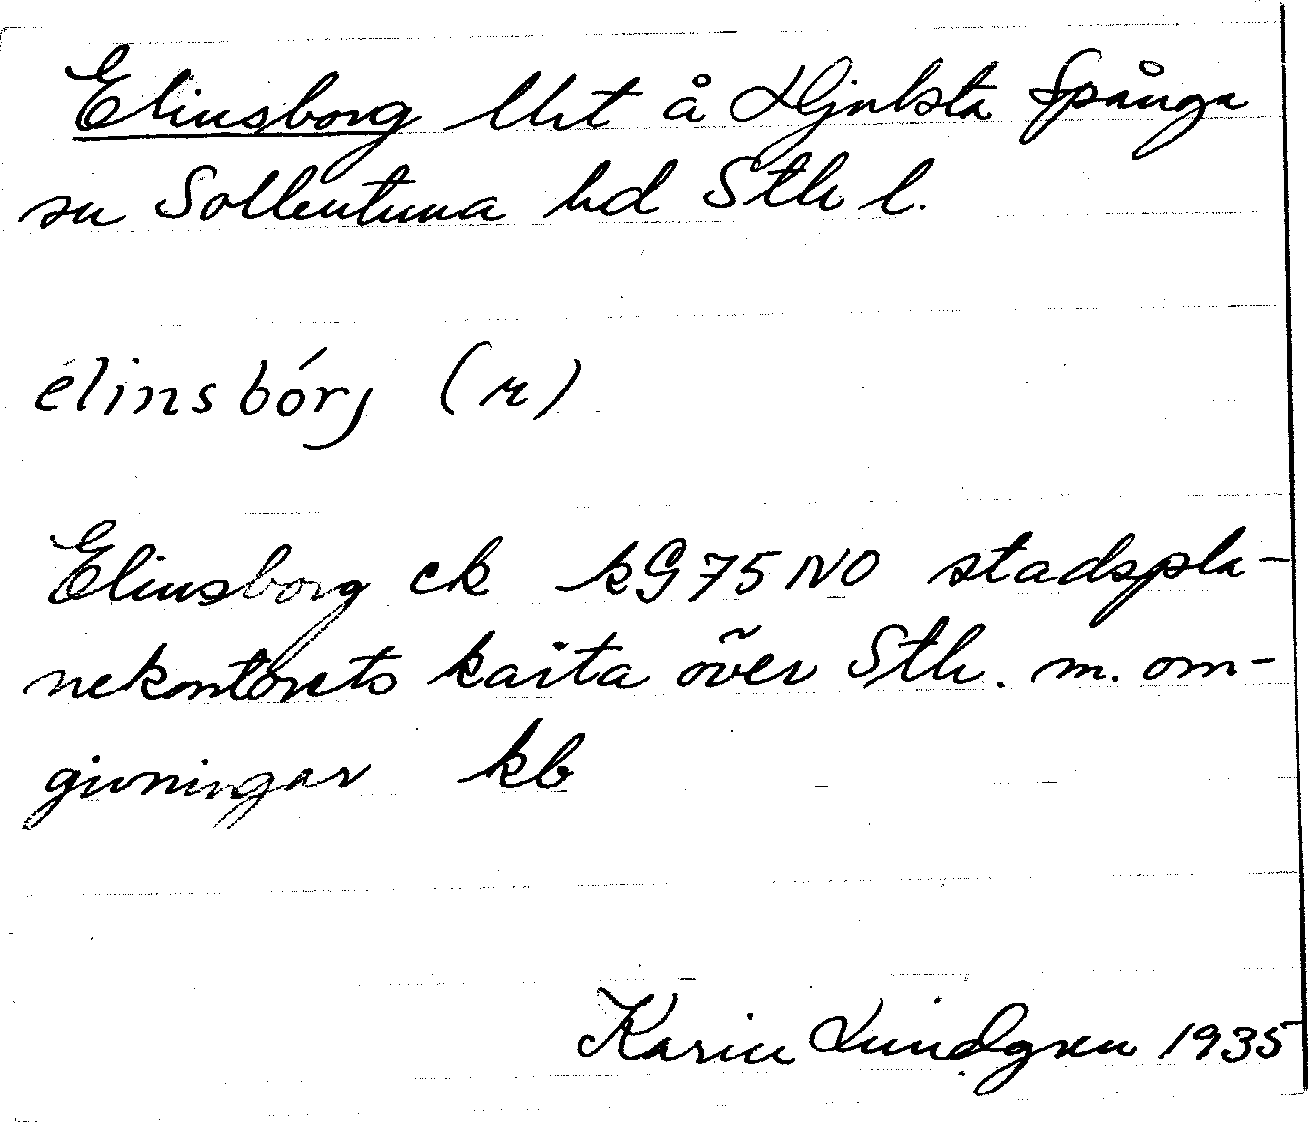 Elinsborg lht å Hjulsta Spånga
sn Sollentuna hd Sth l.
élinsbórj (r)
Elinsborg ek kG75NO stadspla-
nekontorets karta över Sth. m. om-
givningar kb
Karin Lundgren 1935